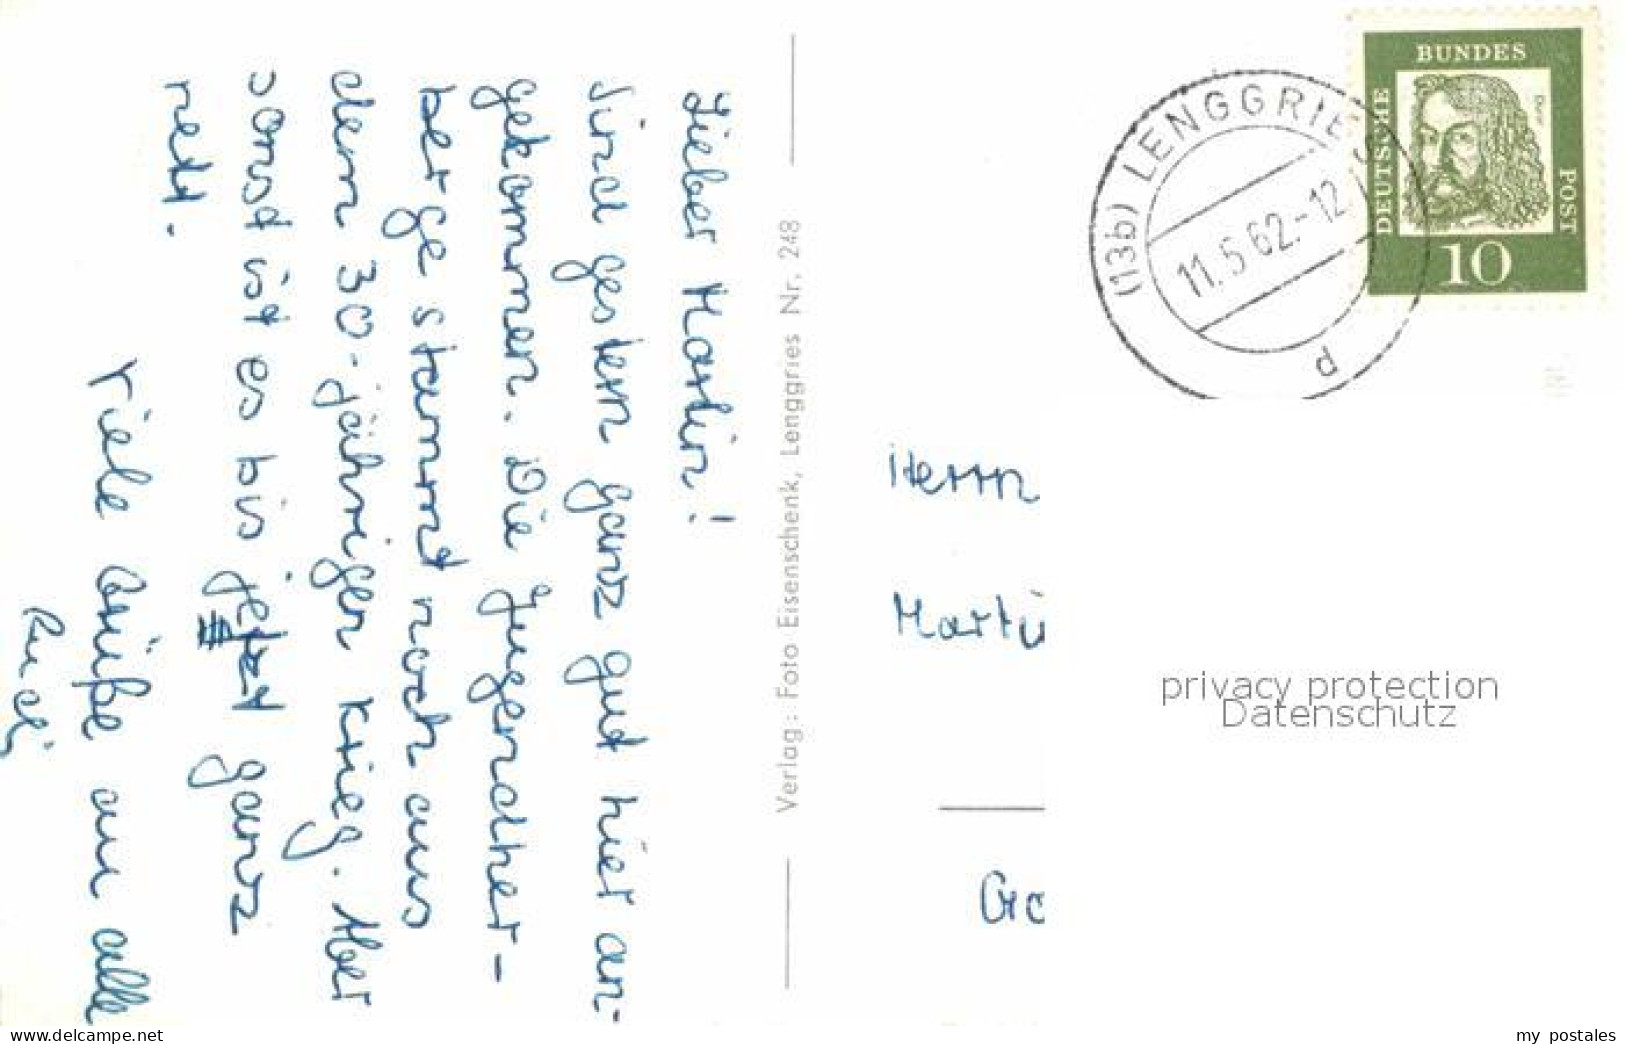 Lieber Martin!
Sind gestern ganz gut hier an-
gekommen. Die Jugendher-
berge stammt noch aus
dem 30-jährigen Krieg. Aber
sonst ist es bis jetzt ganz
nett.
Viele Grüße an alle
Rudi
Verlag: Foto Eisenschenk, Lenggries Nr. 248
(13b) LENGGRIES
11.5.62.-12
d
DEUTSCHE
BUNDES
POST
Dürer
10
Herrn
Marti
Gr
privacy protection
Datenschutz
www.delcampe.net
my_postales